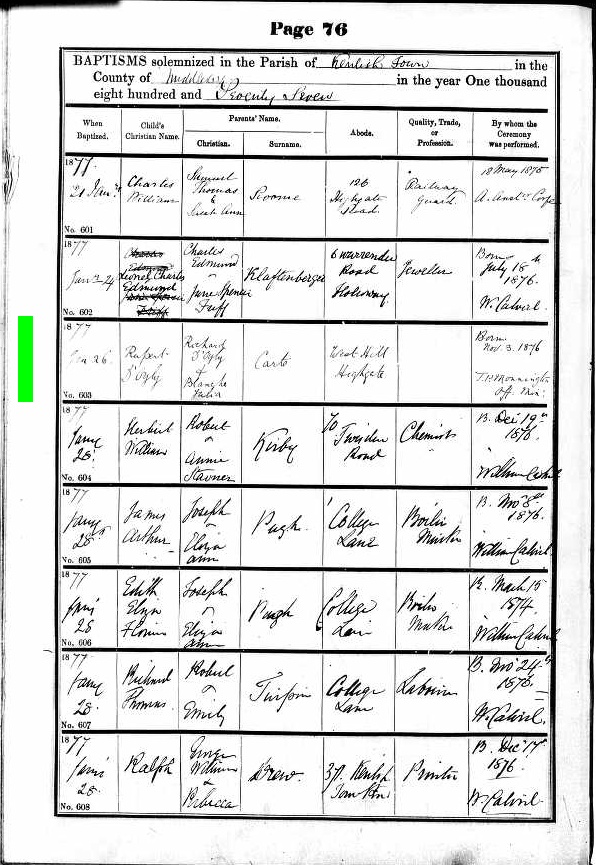 Page 76
BAPTISMS solemnized in the Parish of Kentish Town in the
County of Middlesex in the year One thousand
eight hundred and Seventy Seven
When Baptized. Child's Christian Name. Parents' Name. Abode. Quality, Trade, or Profession. By whom the Ceremony was performed.
Christian. Surname.
1877
21 Jany
No. 601
Charles
William
Samuel
Thomas
&
Sarah Ann
Roome
126
Highgate
Road
Railway
Guard
18 May 1875
1877
No. 602
Charles
Edmund
Lionel Charles
Edmund
Charles
Edmund
Jane Spencer
Tuff
Klaftenberger
6 Warrender
Road
Holloway
Jeweller
Born
July 18
1876.
W. Calvert.
1877
Jan 26
No. 603
Rupert
D'Oyly
Richard
D'Oyly
+
Blanche
Julia
Carte
West Hill
Highgate
Born
Nov. 3. 1876
Off. Min.
1877
Jany
28
No. 604
Herbert
William
Robert
Annie
Kirby
70
Road
Chemist
B. Dec 19
1876.
William Calvert
1877
Jany
28
No. 605
James
Arthur
Joseph
Eliza
Ann
Pugh
College
Lane
Boiler
Maker
B. Nov 8
1876.
William Calvert
1877
Jany
28
No. 606
Edith
Eliza
Joseph
Eliza
Ann
Pugh
College
Lane
Boiler
Maker
B. March 15
1874.
William Calvert
1877
Jany
28.
No. 607
Richard
Thomas
Robert
Emily
Turpin
College
Lane
Labourer
B. Nov 24
1876.
W. Calvert.
1877
Jany
28.
No. 608
Ralph
George
William
&
Rebecca
Drew.
37. Kentish
Town
Printer
B. Dec 17
1876.
W. Calvert.